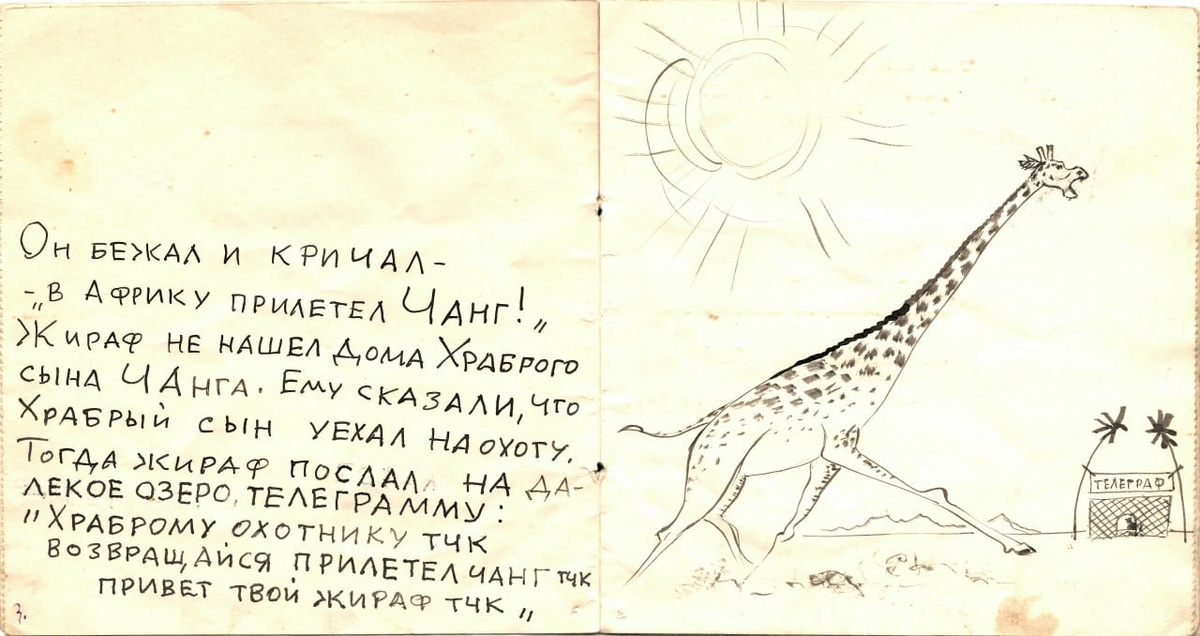 Он бежал и кричал-
-„в Африку прилетел Чанг!„
Жираф не нашел дома Храброго
сына Чанга. Ему сказали, что
Храбрый сын уехал на охоту.
Тогда жираф послал на да-
лекое озеро, телеграмму:
"Храброму охотнику тчк
возвращайся прилетел Чанг тчк
привет твой жираф тчк „
3.
ТЕЛЕГРАФ